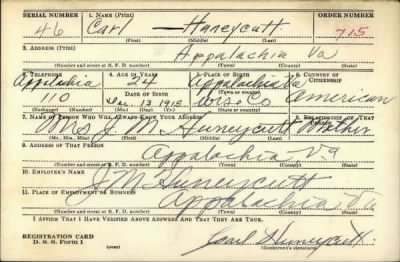 SERIAL NUMBER 1. NAME (Print) ORDER NUMBER
46 Carl — Huneycutt 715
(First) (Middle) (Last)
2. ADDRESS (Print)
Appalachia Va
(Number and street or R. F. D. number) (Town) (County) (State)
3. TELEPHONE 4. AGE IN YEARS 5. PLACE OF BIRTH 6. COUNTRY OF CITIZENSHIP
Appalachia 24 Appalachia Va
DATE OF BIRTH (Town or county)
110 Dec. 13 1915 Wise Co American
(Exchange) (Number) (Mo.) (Day) (Yr.) (State or country)
7. NAME OF PERSON WHO WILL ALWAYS KNOW YOUR ADDRESS 8. RELATIONSHIP OF THAT PERSON
Mrs J M Huneycutt Mother
(Mr., Mrs., Miss) (First) (Middle) (Last)
9. ADDRESS OF THAT PERSON
Appalachia Va
(Number and street or R. F. D. number) (Town) (County) (State)
10. EMPLOYER'S NAME
J M Huneycutt
11. PLACE OF EMPLOYMENT OR BUSINESS
Appalachia Va
(Number and street or R. F. D. number) (Town) (County) (State)
I AFFIRM THAT I HAVE VERIFIED ABOVE ANSWERS AND THAT THEY ARE TRUE.
REGISTRATION CARD
D. S. S. Form 1 Carl Huneycutt
(Registrant's signature)